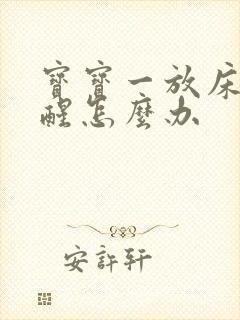 寶寶一放床
醒怎麼办
安許轩